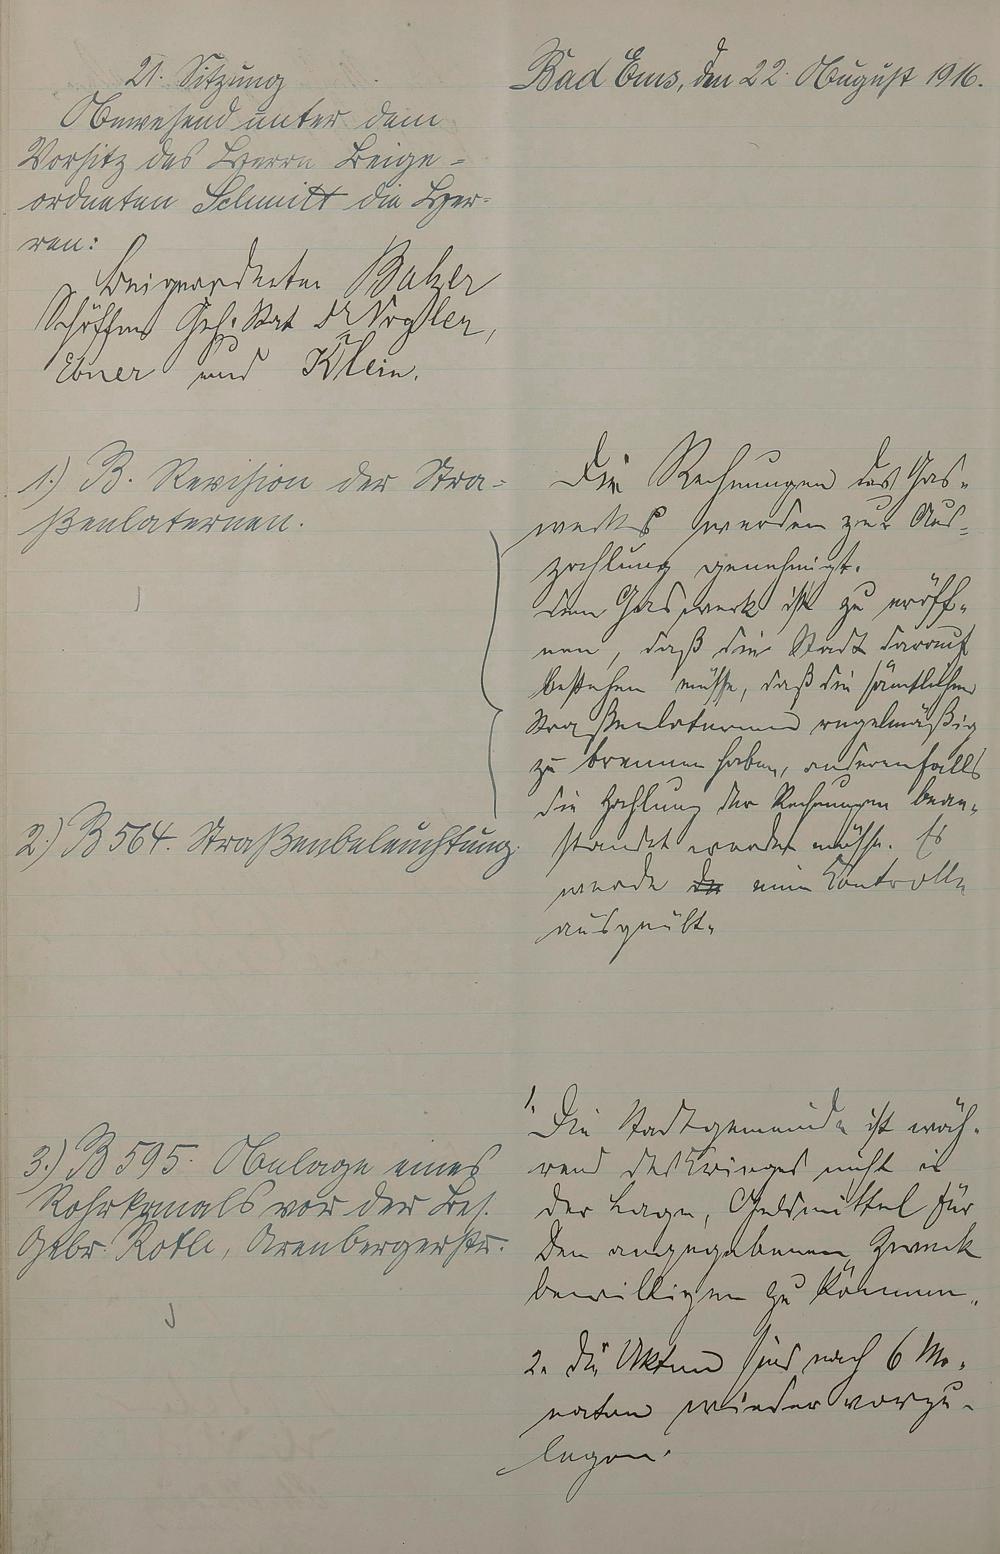 21. Sitzung
Anwesend unter dem
Vorsitz des Herrn Beige-
ordneten Schmitt die Her-
ren:
Beigeordneter Balzer
Schöffen Geh. Rat Dr Vogler,
Ebner und Klein.
Bad Ems, den 22. August 1916.
1.) B. Revision der Stra-
ßenlaternen.
2.) B 564. Straßenbeleuchtung.
Die Rechnungen des Gas-
werks werden zur Aus-
zahlung genehmigt.
Dem Gaswerk ist zu eröff-
nen, daß die Stadt darauf
bestehen müsse, daß die sämtlichen
Straßenlaternen regelmäßig
zu brennen haben, anderenfalls
die Zahlung der Rechnungen bean-
standet werden müsse. Es
werde eine Controlle
ausgeübt.
3.) B 595. Anlage eines
Rohrkanals vor der Bes.
Gebr. Roth, Arenbergerstr.
1. Die Stadtgemeinde ist wäh-
rend des Krieges nicht in
der Lage, Geldmittel für
den angegebenen Zweck
bewilligen zu können.
2. Die Akten sind nach 6 Mo-
naten wieder vorzu-
legen.